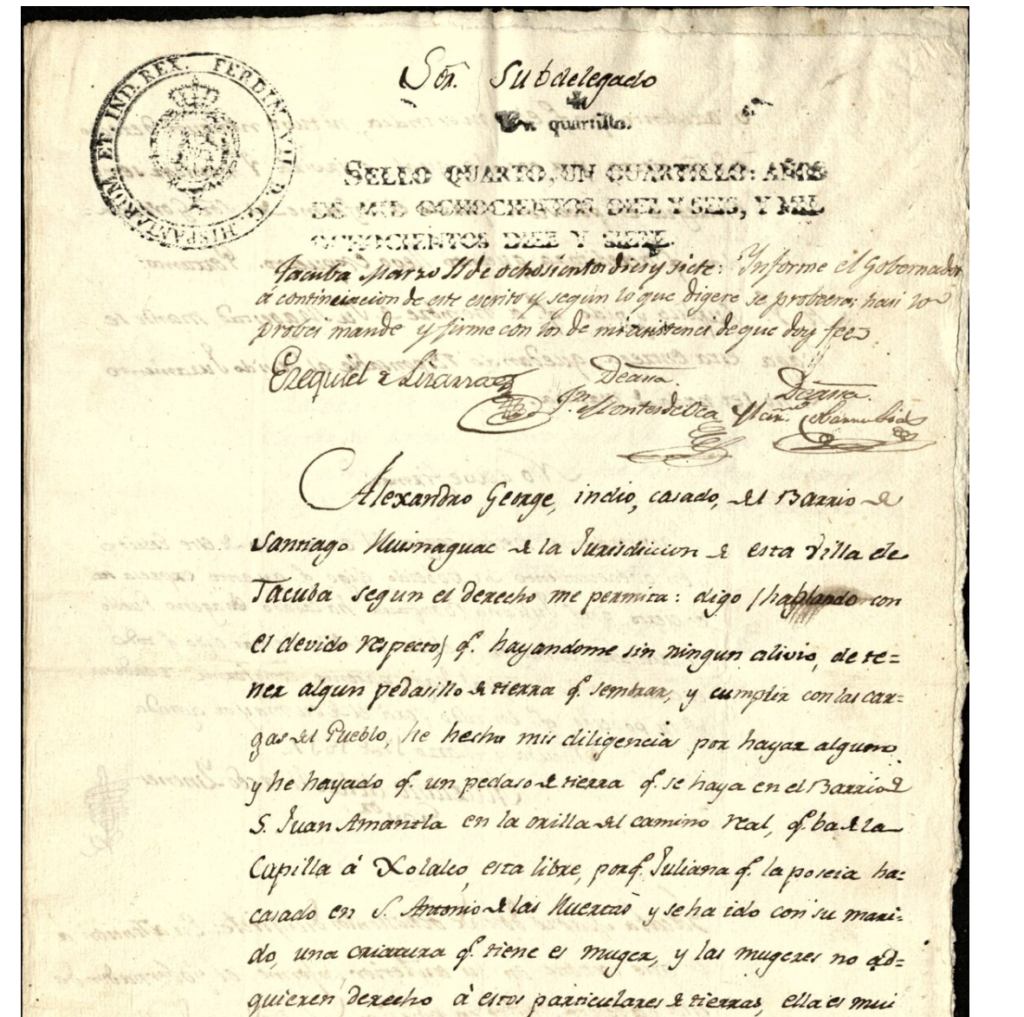 FERDIN. VII. D. G. HISPANIARUM. ET. IND. REX.
Sōr. Subdelegado
Un quartillo.
SELLO QUARTO, UN QUARTILLO: AÑOS
DE MIL OCHOCIENTOS DIEZ Y SEIS, Y MIL
OCHOCIENTOS DIEZ Y SIETE.
Tacuba Marzo 11 de ochosientos dies y siete: Informe el Gobernador
á continuacion de este escrito y según lo que digere se probeera; hasi lo
probei mande y firme con los de mi asistencia de que doy fee
Ezequiel de Lizarza
De assa. De assa.
Jn. Montes de Oca
Alexandro George, indio, casado, del Barrio de
Santiago Huisnaguac de la Jurisdiccion de esta Villa de
Tacuba segun el derecho me permita: digo (hablando con
el devido respecto) q.e hayandome sin ningun alivio, de te=
ner algun pedasillo de tierra q.e sembrar, y cumplir con las car=
gas del Pueblo, he hecho mis diligencia por hayar alguno
y he hayado q.e un pedaso de tierra q.e se haya en el Barrio de
S. Juan Amantla en la orilla del camino real, q.e ba de la
Capilla á Xolalco, esta libre, porq.e Juliana q.e la poseia ha=
casado en S. Antonio de las Huertas y se ha ido con su mari=
do, una criatura q.e tiene es muger, y las mugeres no ad=
quieren derecho á estos particulares de tierras, ella es mui